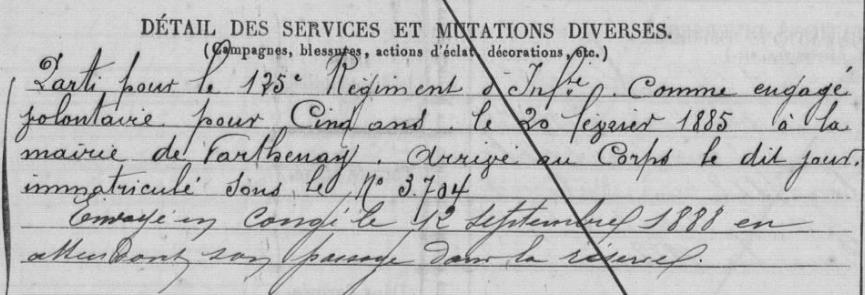 DÉTAIL DES SERVICES ET MUTATIONS DIVERSES.
(Campagnes, blessures, actions d'éclat, décorations, etc.)
Parti pour le 125e Régiment d'Infrie. Comme engagé
volontaire pour Cinq ans. le 20 février 1885 à la
mairie de Parthenay. Arrivé au Corps le dit jour.
immatriculé sous le No 3.704
Envoyé en congé le 12 septembre 1888 en
attendant son passage dans la réserve.